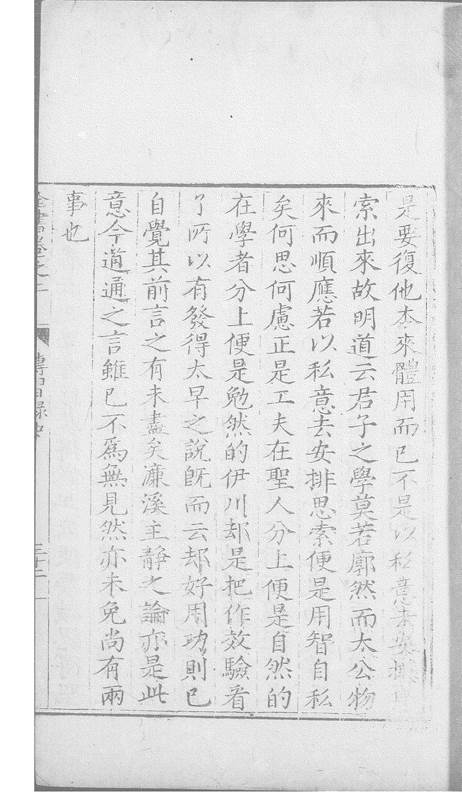 是要復他本來體用而已不是以私意去安排思
索出來故明道云君子之學莫若廓然而太公物
來而順應若以私意去安排思索便是用智自私
矣何思何慮正是工夫在聖人分上便是自然的
在學者分上便是勉然的伊川却是把作效驗看
了所以有發得太早之說旣而云却好用功則已
自覺其前言之有未盡矣濂溪主靜之論亦是此
意今道通之言雖已不爲無見然亦未免尚有兩
事也
全書卷之二 傳習錄中